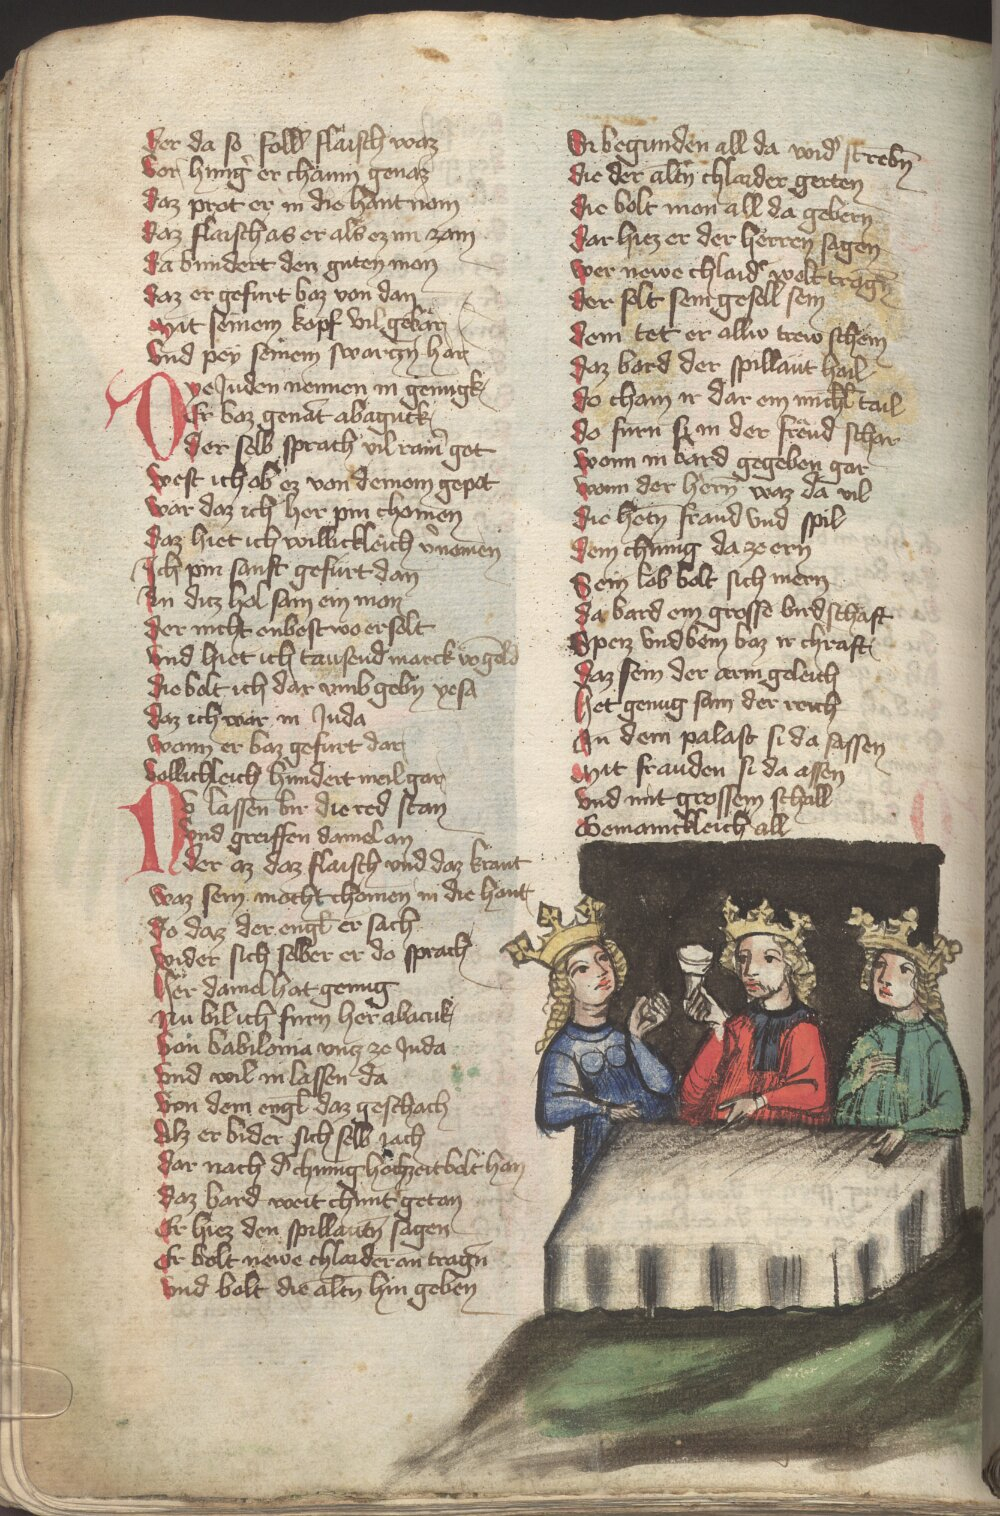 Der da so foll flaisch waz
Vor hung er chaum genaz
Daz prot er in die hant nom
Daz flaisch as er als ez im zam
Da bundert den guten mon
Daz er gefurt baz von dan
Mit seinem kopf vil gebar
Und pey seinem swarczn har
Dye Juden nennen in genugk
Er baz genāt abaguck
Der selb sprach vil rain got
West ich ob ez von deinem gepot
War daz ich her pin chomen
Daz hiet ich willickleich vnomen
Ich pin sanft gefurt dan
In ditz hol sam ein mon
Der nicht enbest wo er solt
Und hiet ich tausend marck vō gold
Die bolt ich dar vmb gebn yesa
Daz ich war in Juda
Wann er baz gefurt dar
Vollickleich hundert meil gar
Nv lassen bir die red stan
Und greiffen daniel an
Der az daz flaisch und daz kraut
Waz sein mocht chomen in die haut
Do daz der engl er sach
Wider sich selber er do sprach
Her daniel hat genug
Nu bil ich furn her abacuk
Von babilonia untz ze Juda
Und wil in lassen da
Von dem engl daz geschach
Alz er bider sich selb jach
Dar nach d chunig hochzeit bolt han
Daz bard weit chunt getan
Er hiez den spillautn sagen
Er bolt newe chlaider an tragn
Und bolt die altn hin geben
Si begunden all da wid strebn
Die der altn chlaider gerten
Die bolt mon all da gebern
Dar hiez er der herren sagen
Wer newe chlaid wolt tragn
Der solt sein gesell sein
Dem tet er allw trew schein
Daz bard der spillaut hail
Do cham ir dar ein michl tail
Do furn si in der freud schar
Wonn in bard gegeben gar
Wann der hern waz da vil
Die hetn fraud und spil
Dem chunig da ze ern
Sein lob bolt sich mern
Da bard ein grosse birdschaft
Speiz und bein baz ir chraft
Daz sein der arm geleich
Het genug sam der reich
In dem palast si da sassen
Mit frauden si da assen
Und mit grossem schall
Gemainckleich all